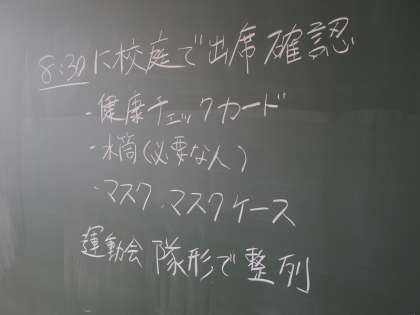 8:30に校庭で出席確認
・健康チェックカード
・水筒(必要な人)
・マスク、マスクケース
運動会 隊形で整列